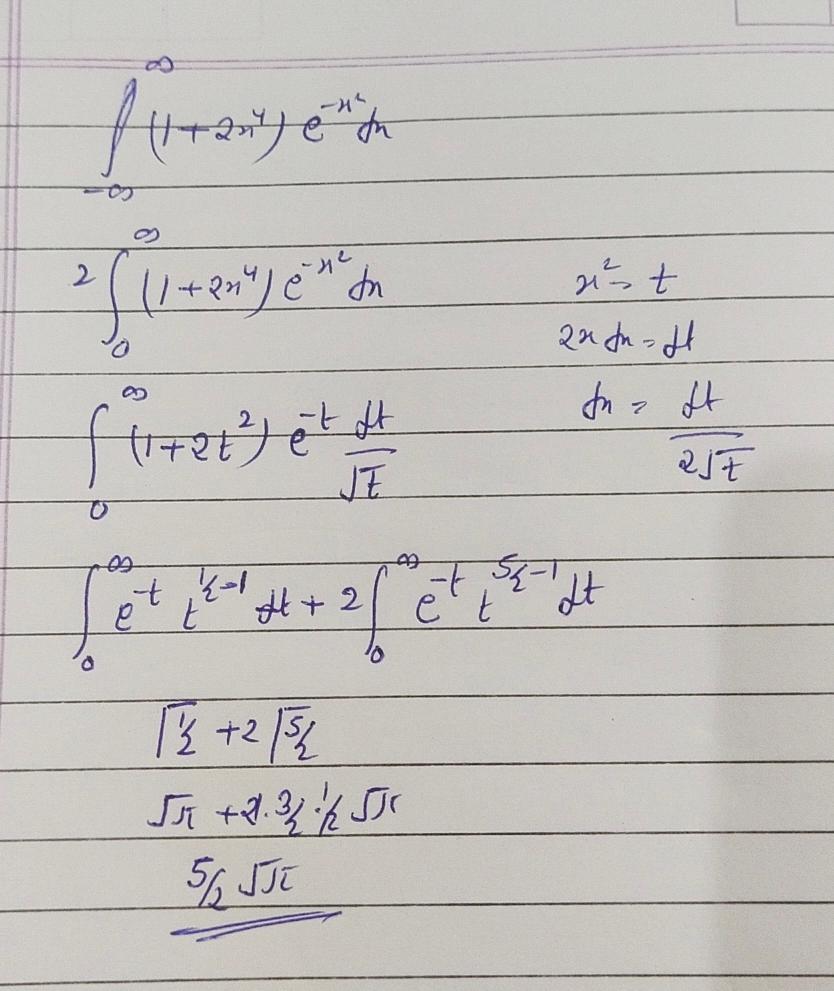 ∫_{-∞}^{∞} (1+2x⁴) e^{-x²} dx
2 ∫_0^∞ (1+2x⁴) e^{-x²} dx
x² = t
2x dx = dt
∫_0^∞ (1+2t²) e^{-t} dt/√t
dx = dt/(2√t)
∫_0^∞ e^{-t} t^{1/2-1} dt + 2 ∫_0^∞ e^{-t} t^{5/2-1} dt
Γ1/2 + 2 Γ5/2
√π + 2·3/2·1/2 √π
5/2 √π